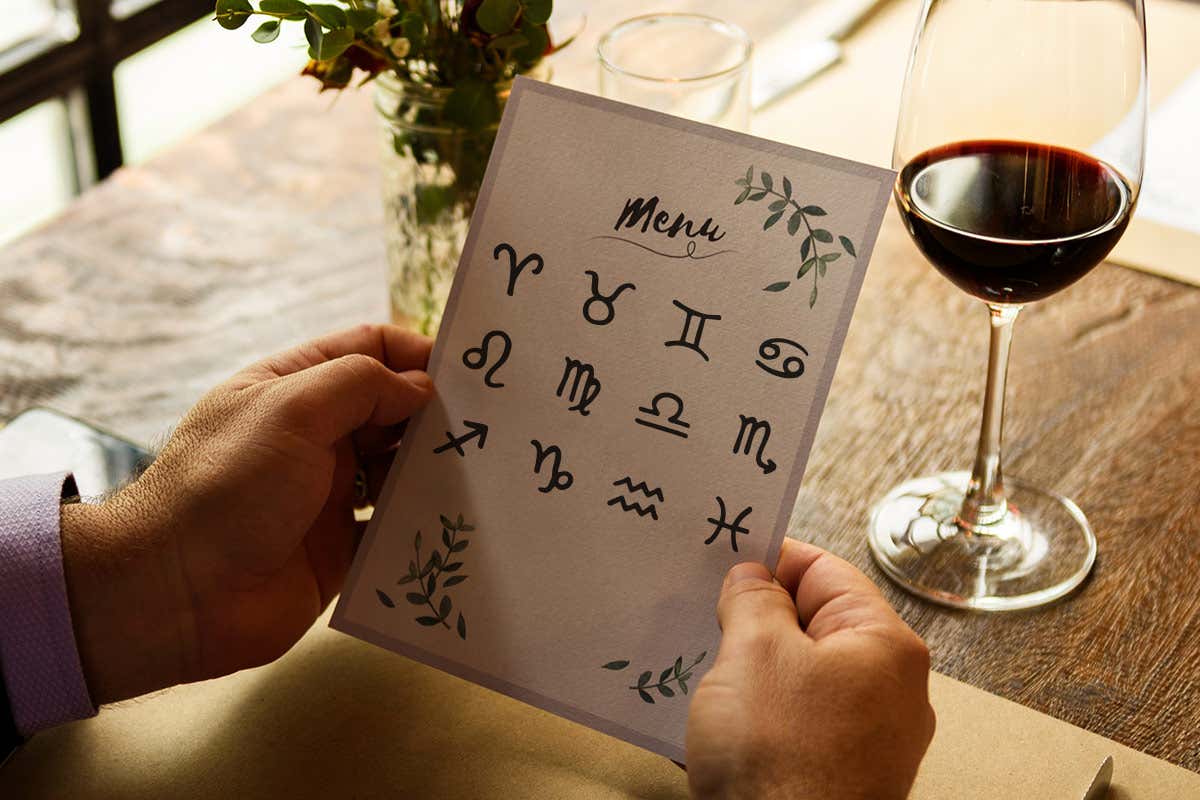 Menu
♈ ♉ ♊ ♋
♌ ♍ ♎ ♏
♐ ♑ ♒ ♓